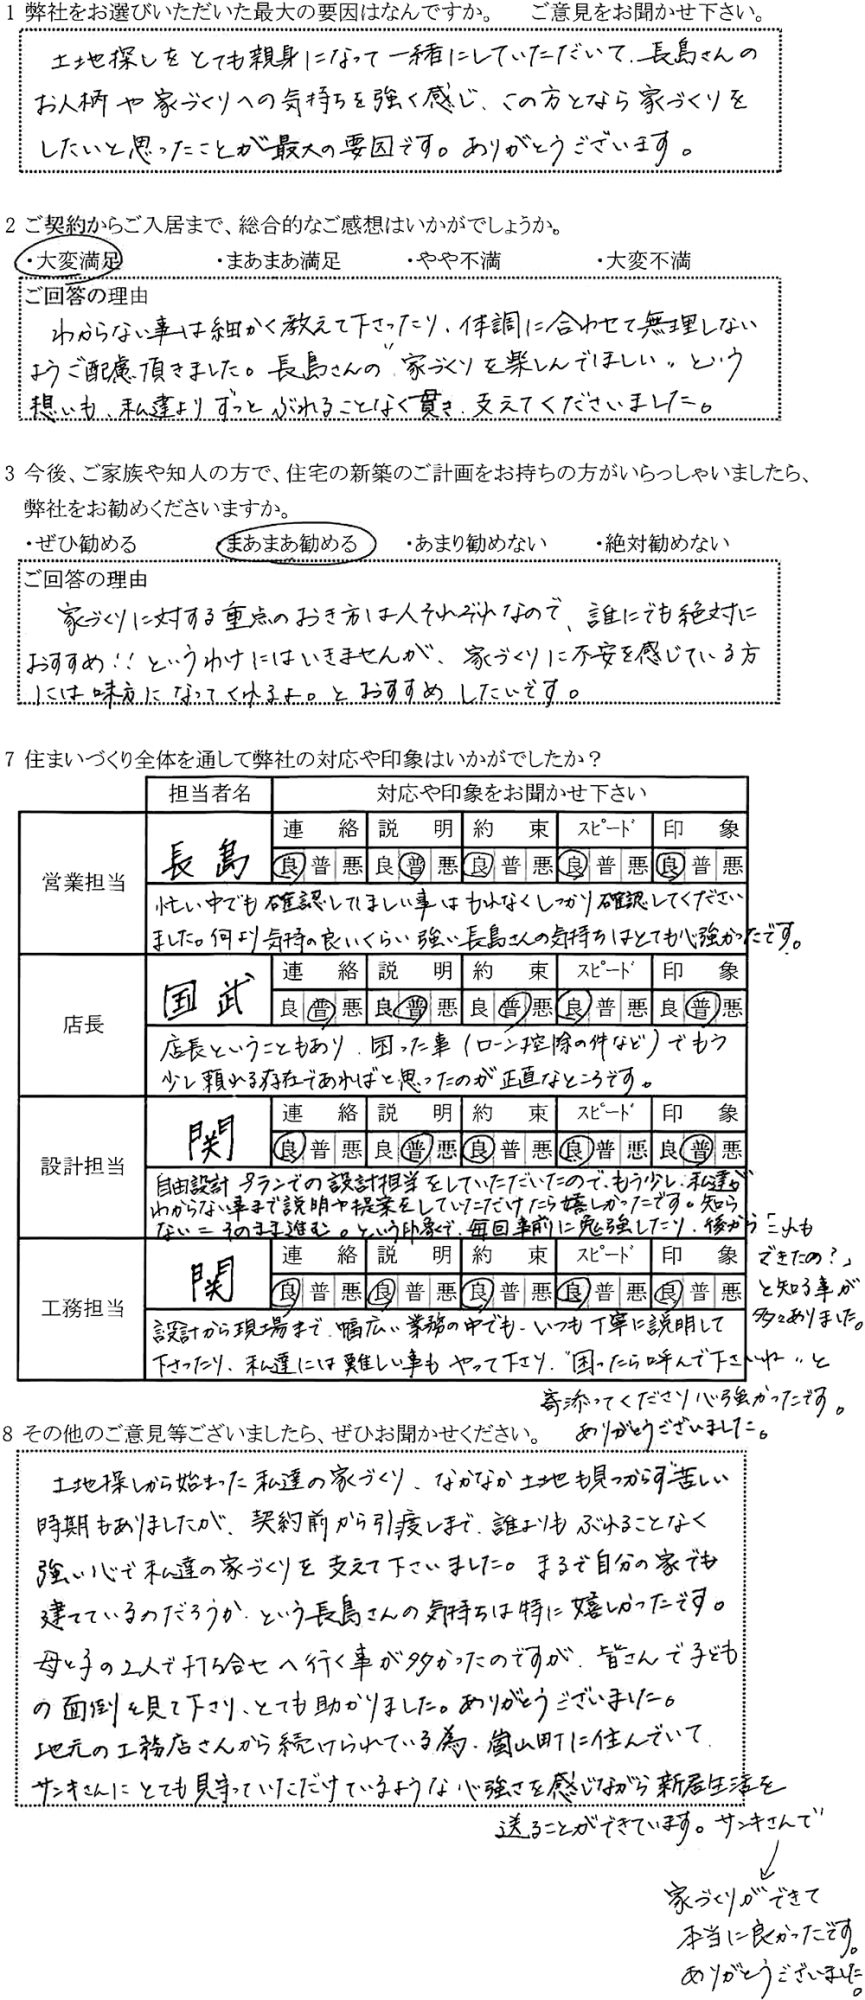 1 弊社をお選びいただいた最大の要因はなんですか。　ご意見をお聞かせ下さい。
土地探しをとても親身になって一緒にしていただいて、長島さんの
お人柄や家づくりへの気持ちを強く感じ、この方となら家づくりを
したいと思ったことが最大の要因です。ありがとうございます。
2 ご契約からご入居まで、総合的なご感想はいかがでしょうか。
・大変満足　・まあまあ満足　・やや不満　・大変不満
ご回答の理由
わからない事は細かく教えて下さったり、体調に合わせて無理しない
ようご配慮頂きました。長島さんの“家づくりを楽しんでほしい”という
想いも、私達よりずっとぶれることなく貫き、支えてくださいました。
3 今後、ご家族や知人の方で、住宅の新築のご計画をお持ちの方がいらっしゃいましたら、
弊社をお勧めくださいますか。
・ぜひ勧める　・まあまあ勧める　・あまり勧めない　・絶対勧めない
ご回答の理由
家づくりに対する重点のおき方は人それぞれなので、誰にでも絶対に
おすすめ!!というわけにはいきませんが、家づくりに不安を感じている方
には味方になってくれるよ。とおすすめしたいです。
7 住まいづくり全体を通して弊社の対応や印象はいかがでしたか？
担当者名　対応や印象をお聞かせ下さい
営業担当　長島　連絡　説明　約束　スピード　印象
良 普 悪　良 普 悪　良 普 悪　良 普 悪　良 普 悪
忙い中でも確認してほしい事はもれなくしっかり確認してください
ました。何より気持の良いくらい強い長島さんの気持ちはとても心強かったです。
店長　国武　連絡　説明　約束　スピード　印象
良 普 悪　良 普 悪　良 普 悪　良 普 悪　良 普 悪
店長ということもあり、困った事（ローン控除の件など）でもう
少し頼れる存在であればと思ったのが正直なところです。
設計担当　関　連絡　説明　約束　スピード　印象
良 普 悪　良 普 悪　良 普 悪　良 普 悪　良 普 悪
自由設計プランでの設計担当をしていただいたので、もう少し、私達が
わからない事まで説明や提案をしていただけたら嬉しかったです。知ら
ない＝そのまま進む。という印象で、毎回事前に勉強したり、後から「これも
できたの？」
と知る事が
多々ありました。
工務担当　関　連絡　説明　約束　スピード　印象
良 普 悪　良 普 悪　良 普 悪　良 普 悪　良 普 悪
設計から現場まで、幅広い業務の中でも、いつも丁寧に説明して
下さったり、私達には難しい事もやって下さり、“困ったら呼んで下さいね”と
寄添ってくださり心強かったです。
ありがとうございました。
8 その他のご意見等ございましたら、ぜひお聞かせください。
土地探しから始まった私達の家づくり、なかなか土地も見つからず苦しい
時期もありましたが、契約前から引渡しまで、誰よりもぶれることなく
強い心で私達の家づくりを支えて下さいました。まるで自分の家でも
建てているのだろうか、という長島さんの気持ちは特に嬉しかったです。
母と子の2人で打ち合せへ行く事が多かったのですが、皆さんで子ども
の面倒を見て下さり、とても助かりました。ありがとうございました。
地元の工務店さんから続けられている為、嵐山町に住んでいて、
サンキさんにとても見守っていただけているような心強さを感じながら新居生活を
送ることができています。サンキさんで
家づくりができて
本当に良かったです。
ありがとうございました。